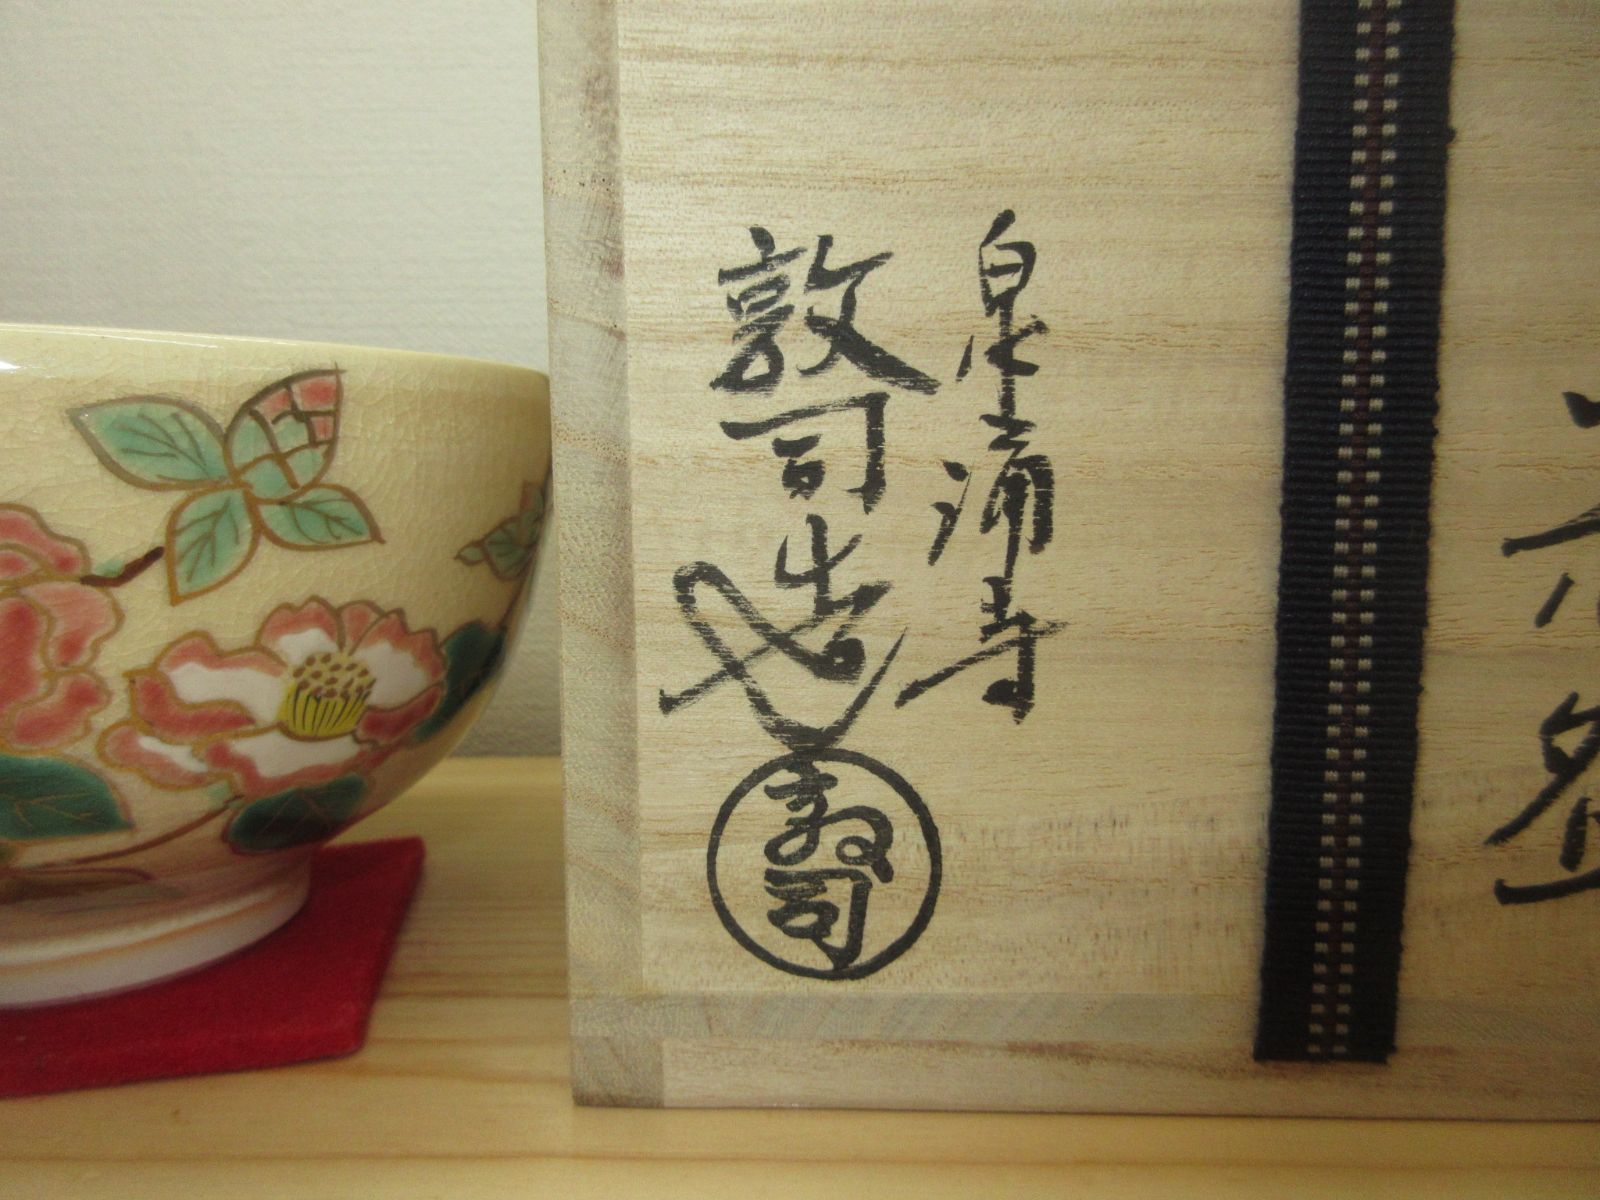 泉涌寺
敦司造
寿司